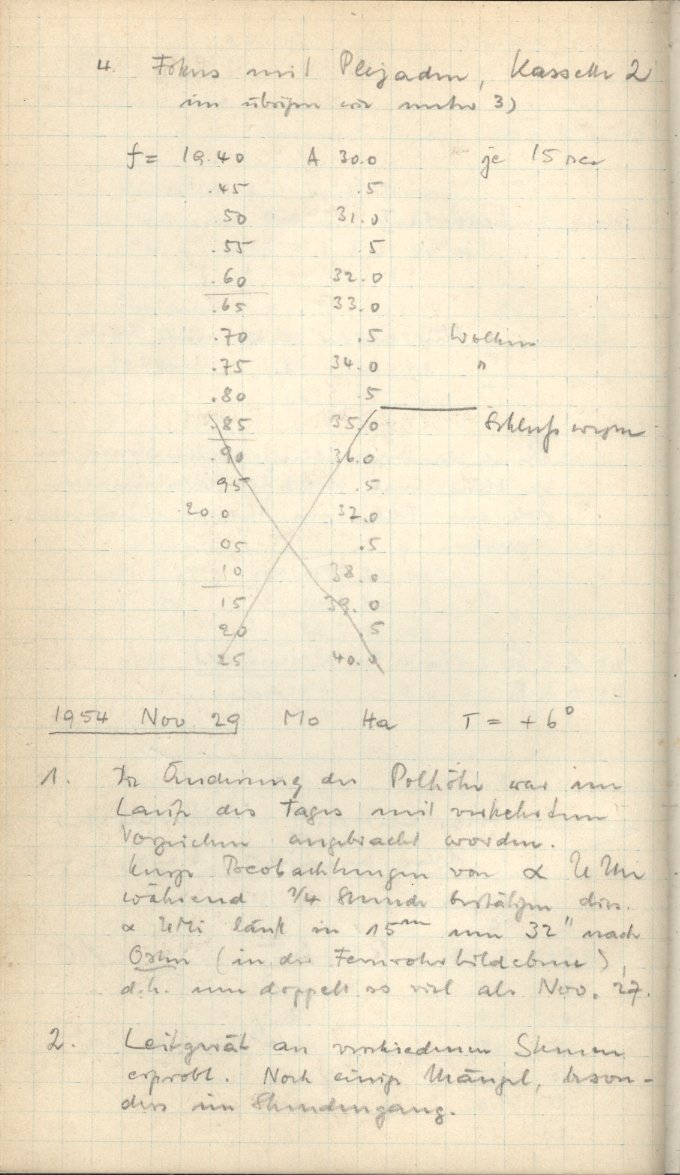 4. Fokus mit Plejaden, Kassette 2
im übrigen wie unter 3)
f = 19.40 A 30.0 je 15 sec
.45 .5
.50 31.0
.55 .5
.60 32.0
.65 33.0
.70 .5 Wolken
.75 34.0 "
.80 .5
.85 35.0 Schluss wegen
.90 36.0
95 .5
20.0 37.0
05 .5
10 38.0
15 39.0
20 .5
25 40.0
1954 Nov 29 Mo Ha T = + 6°
1. Die Änderung der Polhöhe war im
Laufe des Tages mit verkehrtem
Vorzeichen angebracht worden.
Kurze Beobachtungen von α UMi
während 3/4 Stunde bestätigen dies.
α UMi läuft in 15m um 32" nach
Osten (in der Fernrohrbildebene),
d.h. um doppelt so viel als Nov. 27.
2. Leitgerät an verschiedenen Sternen
erprobt. Noch einige Mängel, beson-
ders im Stundengang.